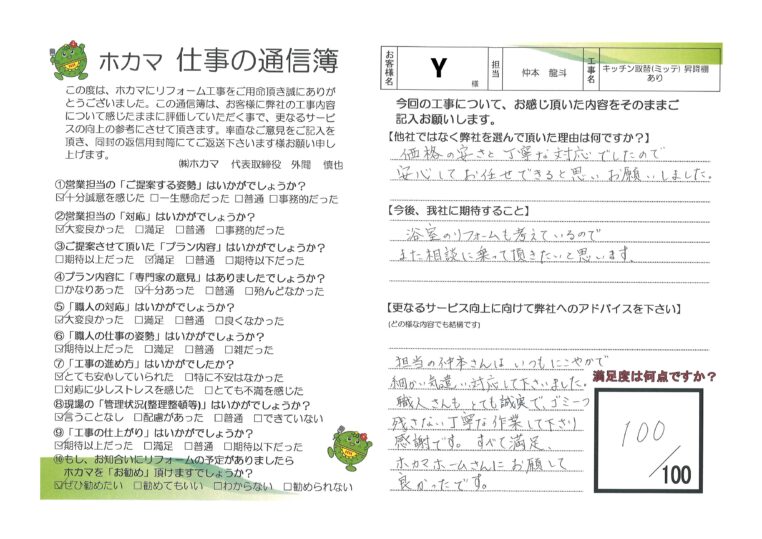 ホカマ 仕事の通信簿
この度は、ホカマにリフォーム工事をご用命頂き誠にありが
とうございました。この通信簿は、お客様に弊社の工事内容
について感じたままに評価していただく事で、更なるサービ
スの向上の参考にさせて頂きます。率直なご意見をご記入を
頂き、同封の返信用封筒にてご返送下さいます様お願い申し
上げます。
㈱ホカマ 代表取締役 外間 慎也
①営業担当の「ご提案する姿勢」はいかがでしょうか?
☑十分誠意を感じた □一生懸命だった □普通 □事務的だった
②営業担当の「対応」はいかがでしょうか?
☑大変良かった □満足 □普通 □事務的だった
③ご提案させて頂いた「プラン内容」はいかがでしょうか?
□期待以上だった ☑満足 □普通 □期待以下だった
④プラン内容に「専門家の意見」はありましたでしょうか?
□かなりあった ☑十分あった □普通 □殆んどなかった
⑤「職人の対応」はいかがでしょうか?
☑大変良かった □満足 □普通 □良くなかった
⑥「職人の仕事の姿勢」はいかがでしょうか?
☑期待以上だった □満足 □普通 □雑だった
⑦「工事の進め方」はいかがでしたか?
☑とても安心していられた □特に不安はなかった
□対応に少しストレスを感じた □とても不満を感じた
⑧現場の「管理状況(整理整頓等)」はいかがでしょうか?
☑言うことなし □配慮があった □普通 □できていない
⑨「工事の仕上がり」はいかがでしょうか?
☑期待以上だった □満足 □普通 □期待以下だった
⑩もし、お知合いにリフォームの予定がありましたら
ホカマを「お勧め」頂けますでしょうか?
☑ぜひ勧めたい □勧めてもいい □わからない □勧められない
お客様名 Y 様 担当 仲本 龍斗 工事名 キッチン取替(ミッテ) 昇降棚
あり
今回の工事について、お感じ頂いた内容をそのままご
記入お願いします。
【他社ではなく弊社を選んで頂いた理由は何ですか?】
価格の安さと丁寧な対応でしたので
安心してお任せできると思いお願いしました。
【今後、我社に期待すること】
浴室のリフォームも考えているので
また相談に乗って頂きたいと思います。
【更なるサービス向上に向けて弊社へのアドバイスを下さい】
(どの様な内容でも結構です)
担当の仲本さんは いつもにこやかで
細かい気遣い対応して下さいました。
職人さんも とても誠実で、ゴミ一つ
残さない丁寧な作業して下さり
感謝です。すべて満足、
ホカマホームさんにお願して
良かったです。
満足度は何点ですか?
100
/100